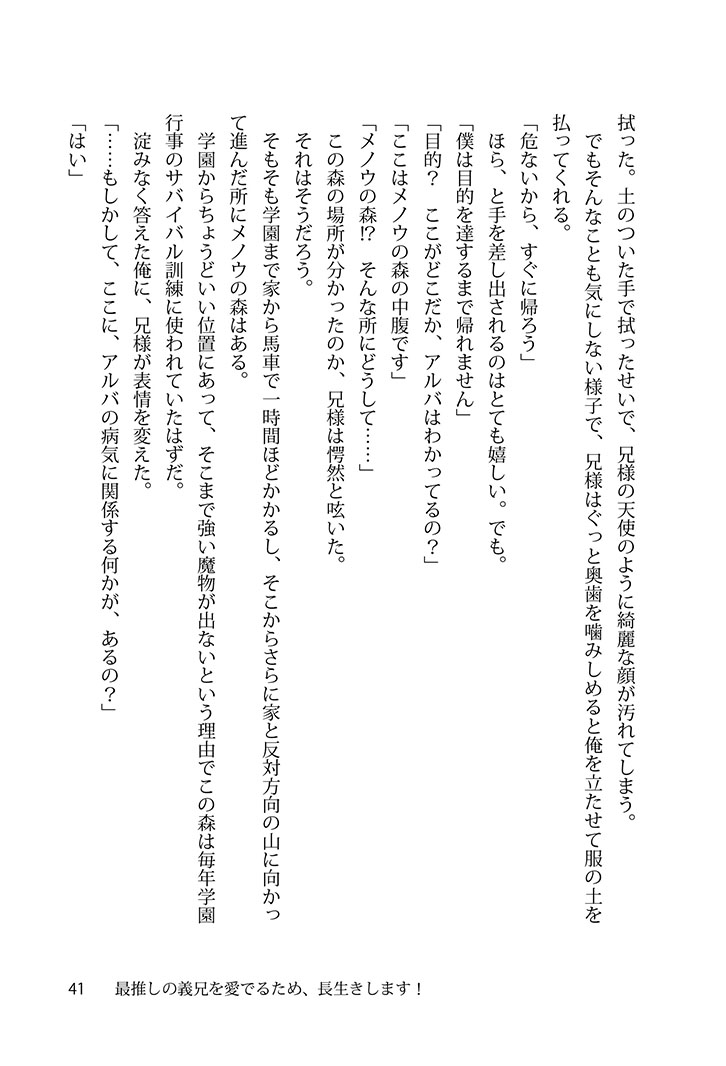 拭った。土のついた手で拭ったせいで、兄様の天使のように綺麗な顔が汚れてしまう。
でもそんなことも気にしない様子で、兄様はぐっと奥歯を噛みしめると俺を立たせて服の土を
払ってくれる。
「危ないから、すぐに帰ろう」
ほら、と手を差し出されるのはとても嬉しい。でも。
「僕は目的を達するまで帰れません」
「目的？　ここがどこだか、アルバはわかってるの？」
「ここはメノウの森の中腹です」
「メノウの森!?　そんな所にどうして……」
この森の場所が分かったのか、兄様は愕然と呟いた。
それはそうだろう。
そもそも学園まで家から馬車で一時間ほどかかるし、そこからさらに家と反対方向の山に向かっ
て進んだ所にメノウの森はある。
学園からちょうどいい位置にあって、そこまで強い魔物が出ないという理由でこの森は毎年学園
行事のサバイバル訓練に使われていたはずだ。
淀みなく答えた俺に、兄様が表情を変えた。
「……もしかして、ここに、アルバの病気に関係する何かが、あるの？」
「はい」
41　最推しの義兄を愛でるため、長生きします！